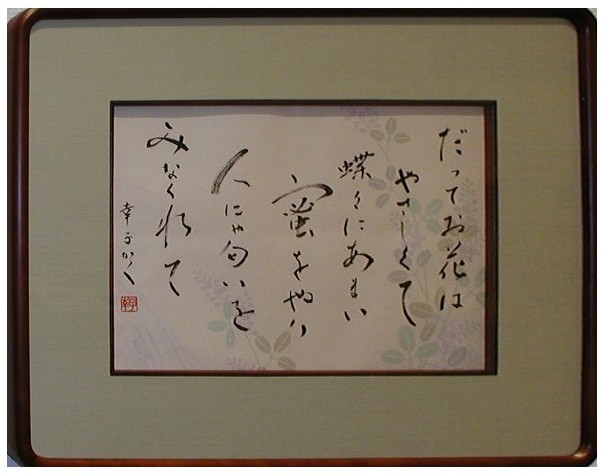 だってお花は
やさしくて
蝶々にあまい
蜜をやり
人にゃ匂いを
みなくれて
幸子かく